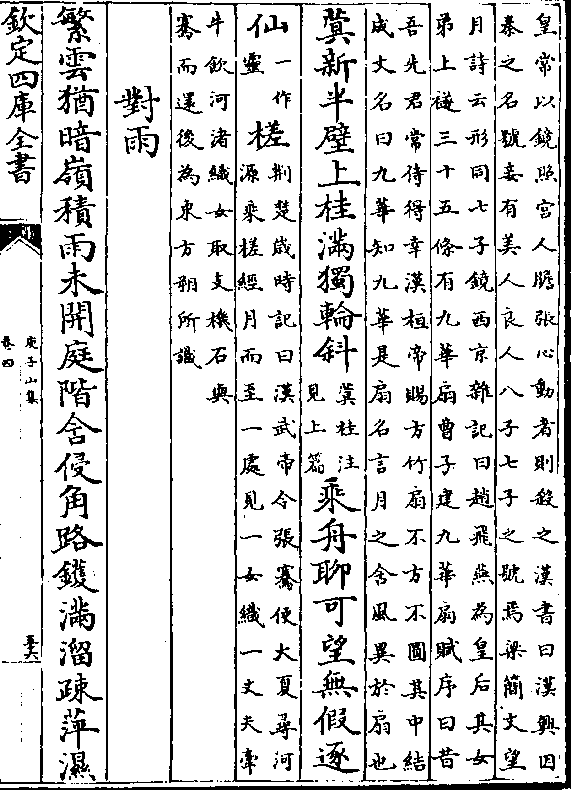 皇常以鏡照宮人膽張心動者則殺之漢書曰漢興因
秦之名號妾有美人良人八子七子之號焉梁簡文望
月詩云形同七子鏡西京雜記曰趙飛燕為皇后其女
弟上襚三十五條有九華扇曹子建九華扇賦序曰昔
吾先君常侍得幸漢桓帝賜方竹扇不方不圓其中結
成文名曰九華知九華是扇名言月之含風異於扇也
蓂新半壁上桂滿獨輪斜蓂桂注見上篇乘舟聊可望無假逐
仙一作靈槎荆楚歲時記曰漢武帝令張騫使大夏尋河源乘槎經月而至一處見一女織一丈夫牽
牛飲河渚織女取支機石與騫而還後為東方朔所識
對雨
繁雲猶暗嶺積雨未開庭階含侵角路鑊滿溜疎萍濕
欽定四庫全書
庾子山集
卷四
五六